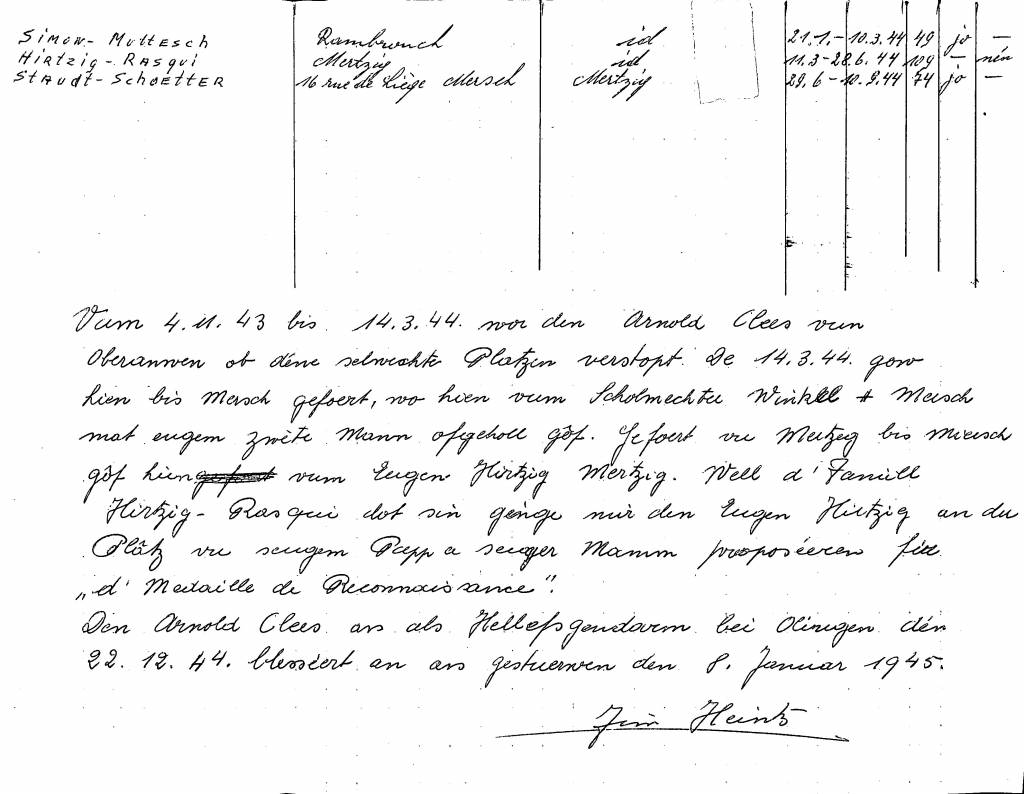 Simon - Muttesch Rambrouch id 21.1. - 10.3.44 49 jo —
Hirtzig - Rasqui Mertzig id 11.3 - 28.6.44 109 — nén
Staudt - Schoetter 16 rue de Liège Mersch Mertzig 29.6 - 10.9.44 74 jo —
Vum 4.11.43 bis 14.3.44. wor den Arnold Clees vun
Oberanwen ob déne selwechte Plätzen verstopt. De 14.3.44. gow
hien bis Mersch gefoert, wo hien vum Scholmechter Winkel + Miersch
mat engem zwète Mann ofgeholl göf. Gefoert vu Mertzeg bis Miersch
göf hien vum Eugen Hirtzig Mertzig. Well d'Famill
Hirtzig - Rasqui dot sin génge mir den Eugen Hirtzig an der
Plâtz vu sengem Papp a senger Mamm proposéieren fir
„d'Medaille de Reconnaissance".
Den Arnold Clees as als Hellefsgendarm bei Olingen dén
22.12.44. blesséert an as gestuerwen den 8. Januar 1945.
Jim Heintz